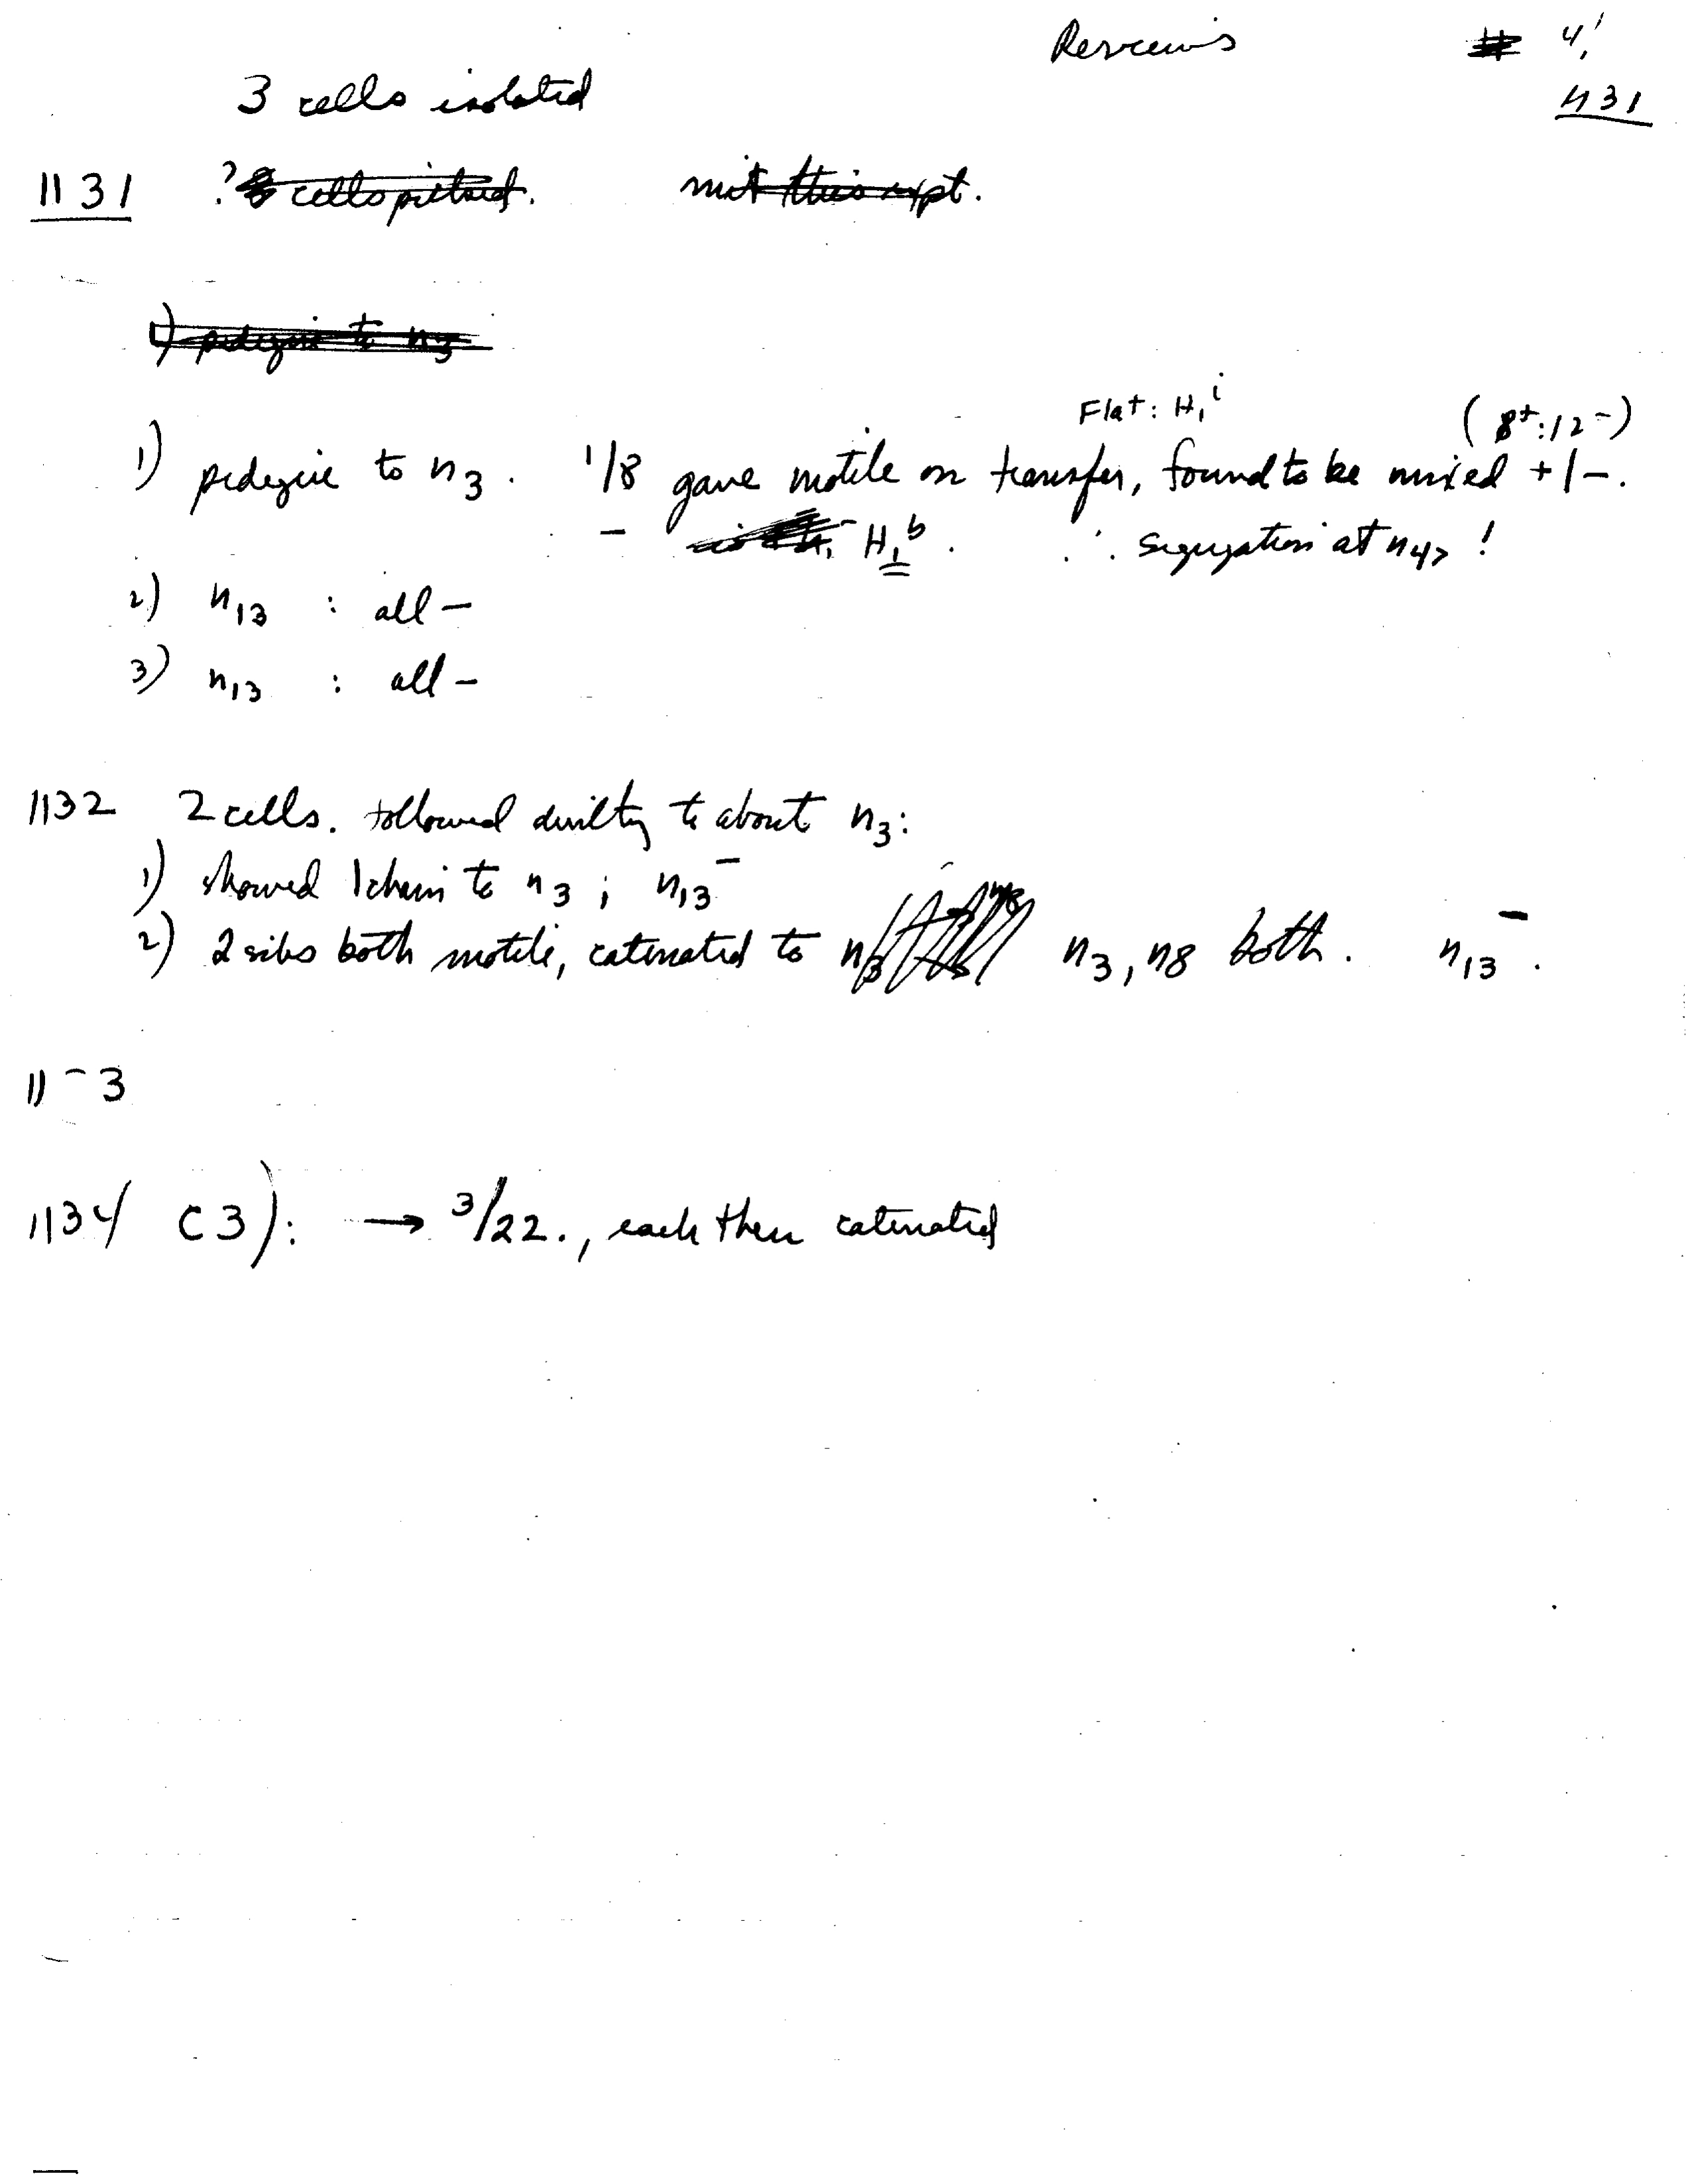 4,
1131
3 cells isolated
1131 ? 8 cells picked. mit this expt.
1) pedigree to n3
Fla+: H1 i (8+:12-)
1) pedigree to n3. 1/8 gave motile on transfer, found to be mixed +/-.
- H1 b. ∴ segregation at n4> !
2) n13 : all -
3) n13 : all -
1132 2 cells. followed directly to about n3:
1) showed 1 chain to n3; n13 -
2) 2 sibs both motile, catenated to n3 n3, n8 both. n13 -.
11-3
1134 C3): → 3/22., each then catenated